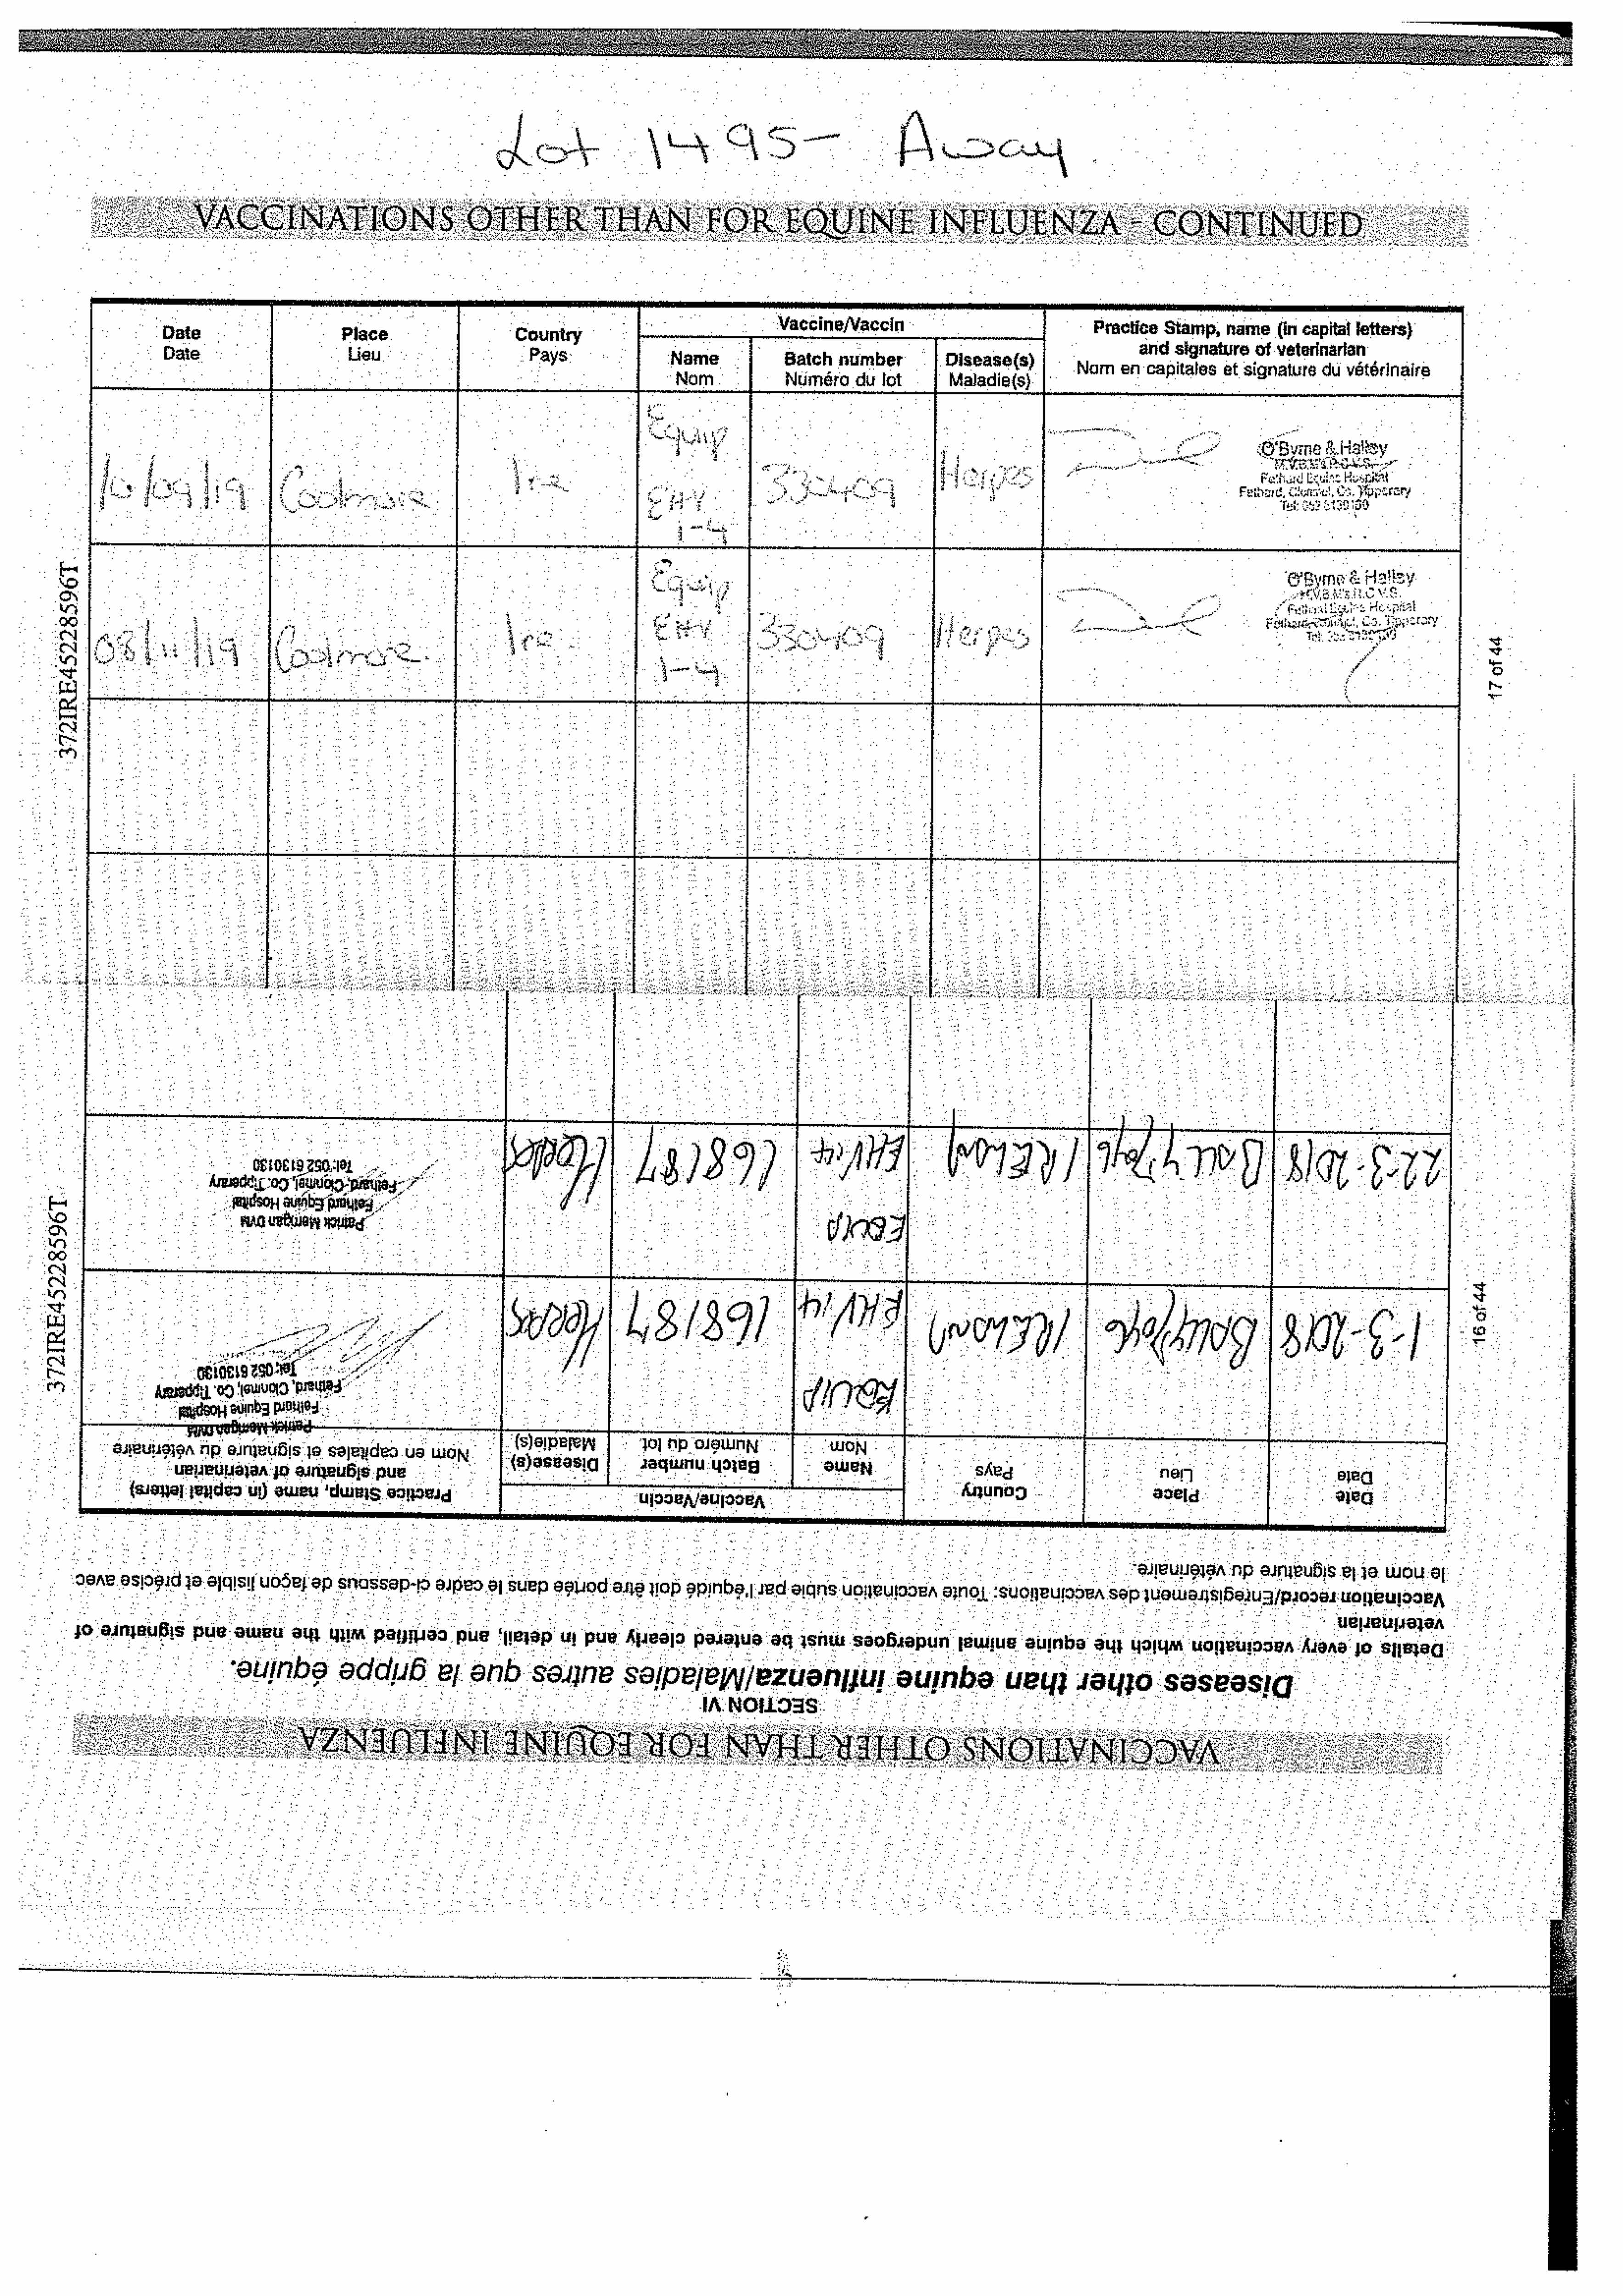 Lot 1495- Away
VACCINATIONS OTHER THAN FOR EQUINE INFLUENZA - CONTINUED
Date
Date
Place
Lieu
Country
Pays
Vaccine/Vaccin
Name
Nom
Batch number
Numéro du lot
Disease(s)
Maladie(s)
Practice Stamp, name (in capital letters)
and signature of veterinarian
Nom en capitales et signature du vétérinaire
10/09/19
Coolmore
Ire
Equip
EHV
1-4
330409
Herpes
O'Byrne & Halley
M.V.B. M's R.C.V.S.
Fethard Equine Hospital
Fethard, Clonmel, Co. Tipperary
Tel: 052 6130130
08/11/19
Coolmore
Ire
Equip
EHV
1-4
330409
Herpes
O'Byrne & Halley
M.V.B. M's R.C.V.S.
Fethard Equine Hospital
Fethard, Clonmel, Co. Tipperary
372IRE45228596T
17 of 44
VACCINATIONS OTHER THAN FOR EQUINE INFLUENZA
SECTION VI
Diseases other than equine influenza/Maladies autres que la grippe équine.
Details of every vaccination which the equine animal undergoes must be entered clearly and in detail, and certified with the name and signature of
veterinarian
Vaccination record/Enregistrement des vaccinations: Toute vaccination subie par l'équidé doit être portée dans le cadre ci-dessous de façon lisible et précise avec
le nom et la signature du vétérinaire.
Date
Date
Place
Lieu
Country
Pays
Vaccine/Vaccin
Name
Nom
Batch number
Numéro du lot
Disease(s)
Maladie(s)
Practice Stamp, name (in capital letters)
and signature of veterinarian
Nom en capitales et signature du vétérinaire
1-3-2018
IRELAND
EQUIP
EHV14
168187
Herpes
Patrick Merrigan DVM
Fethard Equine Hospital
Fethard, Clonmel, Co. Tipperary
Tel: 052 6130130
22-3-2018
IRELAND
EQUIP
EHV14
168187
Herpes
Patrick Merrigan DVM
Fethard Equine Hospital
Fethard, Clonmel, Co. Tipperary
Tel: 052 6130130
372IRE45228596T
16 of 44